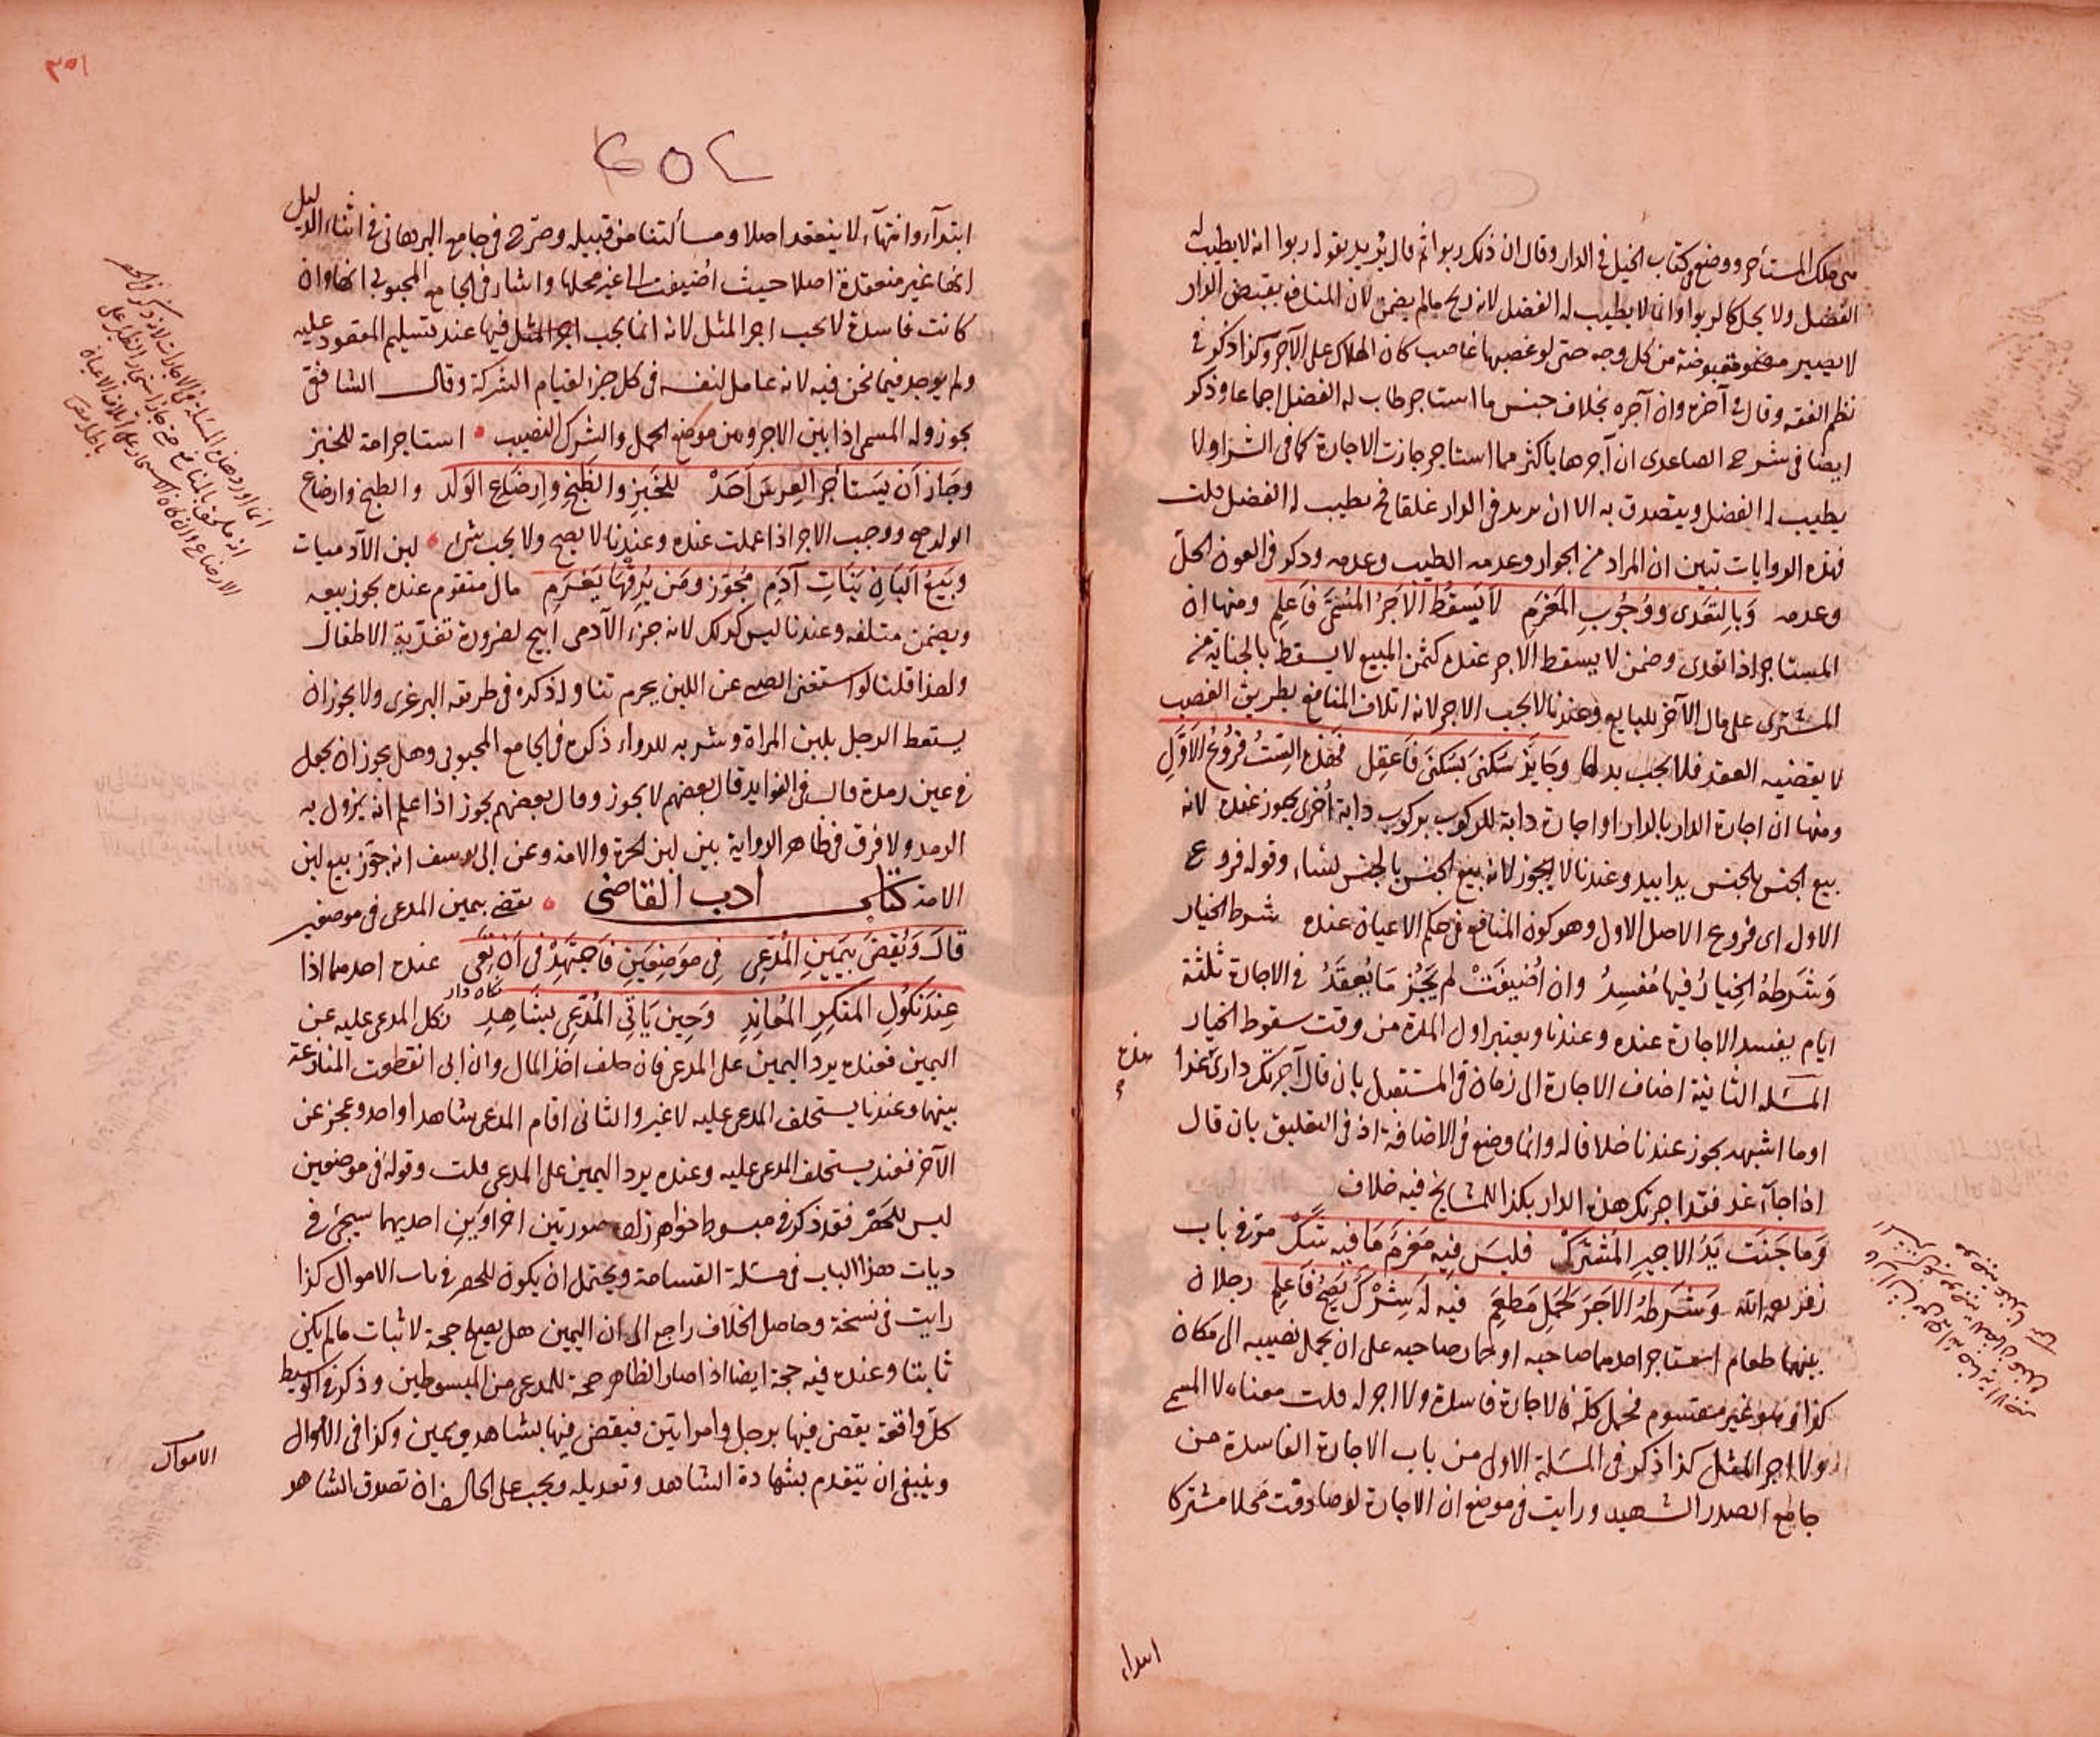 على ملك المستأجر ووضع كتاب الخيل في الدار وقال ان ذلك ربوا ثم قال يريد بقوله ربوا انه لا يطيب له
الفضل ولا يحل كالربوا وانما لا يطيب له الفضل لانه ربح مالم يضمن لان المنافع بقبض الدار
لا يصير مقبوضة من كل وجه حتى لو غصبها غاصب كان الهلاك على الآجر وكذا ذكر في
نظم الفقه وقال في آخره وان آجره بخلاف جنس ما استاجر طاب له الفضل اجماعا وذكر
ايضا في شرح الصاعدى ان آجرها باكثر مما استاجر جازت الاجارة كما في الشرا ولا
يطيب له الفضل ويتصدق به الا ان يريد في الدار غلقا فح يطيب له الفضل قلت
فهذه الروايات تبين ان المراد من الجواز وعدمه الطيب وعدمه وذكر في العون الحل
وعدمه وَبِالتَعَدى وَوُجُوبِ المَغرَمِ لَا يَسقُطُ الْاَجرُ المُسَمَّى فَاعلِم ومنها ان
المستاجر اذا تعدى وضمن لا يسقط الاجر عنده كثمن المبيع لا يسقط بالجناية من
المشترى على مال الآخر للبايع وعندنا لا يجب الاجر لانه اتلاف المنافع بطريق الغصب
لا يقضيه العقد فلا يجب بدلها وجَايَزٌ سَكنى بَسكنَى فَاعقِل فَهَذه السِّتُ فرُوعُ الاَوَّلِ
ومنها ان اجارة الدار بالدار او اجارة دابة للركوب بركوب دابة أخرى يجوز عنده لانه
بيع الجنس بالجنس يدا بيد وعندنا لا يجوز لانه بيع الجنس بالجنس نساء وقوله فروع
الاول اى فروع الاصل الاول وهو كون المنافع في حكم الاعيان عنده شرط الخيار
وَشَرطهُ الخِيارُ فيها مُفسِدُ وان اُضيفَتْ لم يَجُز مَا يُعقَدُ في الاجارة ثلثة
ايام يفسد الاجارة عنده وعندنا ويعتبر اول المدة من وقت سقوط الخيار
المسَله الثانية اضاف الاجارة الى زمان في المستقبل بان قال آجرتك دارى غدا
او ما اشبهه يجوز عندنا خلافا له وانما وضع في الاضافة اذ في التعليق بان قال
اذا جآء غد فقد اجرتك هذه الدار بكذا للمشايخ فيه خلاف
وَما جَنَت يَدُ الاجيرِ المَشتَرك فليسَ فيِه مَغرَمَ مَا فيه شَكّ مرّ في باب
زفر رحمه الله وَشَرَطهُ الاَجرَ لحَملِ مَطعَمَ فيِه لَه شِرْكَ يَصِحُّ فَاعلِم رجلان
بينهما طعام استاجر احدهما صاحبه او حمار صاحبه على ان يحمل نصيبه الى مكان
كذا وهو غير مقسوم فحمل كله فالاجارة فاسدة ولا اجر له قلت معناه لا المسمى
ولا اجر المثل كذا ذكر في المسَلة الاول من باب الاجارة الفاسدة من
جامع الصدر الشهيد ورايت في موضع ان الاجارة لو صادفت محلا مشتركا
ابتداء
٣٥١
ابتدآء وانتهآء لا ينعقد اصلا ومسألتنا من قبيله وصرّح في جامع البرهانى في اثناء الدليل
انها غير منعقدة اصلا حيث اضيفت الى غير محلها واشار في الجامع المحبوبى انها وان
كانت فاسدة لا يجب اجر المثل لانه انما يجب اجر المثل فيها عند تسليم المعقود عليه
ولم يوجد فيما نحن فيه لانه عامل لنفسه في كل جزء لقيام الشركة وقال الشافعى
يجوز وله المسمى اذا بين الاجر ومن موضع الحمل والشرك النصيب استاجر امة للخبز
وجَاز اَن يَستَأجرَ العِرسَ اَحَدْ للخَبزِ والطَّبخِ وارضَاعِ الوَلَد والطبخ وارضاع
الولد صح ووجب الاجر اذا عملت عنده وعندنا لا يصح ولا يجب شئ لبن الآدميات
وبَيعُ اَلبَانِ بَنَاتِ آدَمِ مُجَوَّز ومَن يُرِقْهَا يَغرَمِ مال متقوم عنده يجوز بيعه
ويضمن متلفه وعندنا ليس كذلك لانه جزء الآدمى ابيح لضرورة تغذية الاطفال
ولهذا قلنا لو استغنى الصبى عن اللبن يحرم تناوله ذكره في طريقه البرغرى ولا يجوز ان
يستعط الرجل بلبن المراة وشربه للدواء ذكره في الجامع المحبوبى وهل يجوز ان يجعل
في عين رمدة قال في الفوايد قال بعضهم لا يجوز وقال بعضهم يجوز اذا علم انه يزول به
الرمد ولا فرق في ظاهر الرواية بين لبن الحرة والامة وعن ابى يوسف انه جوّز بيع لبن
الامة كتاب ادب القاضى يقضى بيمين المدعى في موضعين
قالَ وَيُقضَى بِيَمينِ المُدَّعِى فِى مَوضِعَينِ فَاجتَهِدْ فى اَن تَعِى عنده احدهما اذا
عِندَ نكُولِ المنكِرِ المُعانِدِ وَحِين يَاتِى المُدَّعِى بِشَاهِدِ نكل المدعى عليه عن
اليمين فعنده يرد اليمين على المدعى فان حلف اخذ المال وان ابى انقطعت المنازعة
بينهما وعندنا يستحلف المدعى عليه لا غير والثانى اقام المدعى شاهدا واحدا وعجز عن
الآخر فعندنا يستحلف المدعى عليه وعنده يرد اليمين على المدعى قلت وقوله في موضعين
ليس للحصر فقد ذكر في مبسوط خواهرزاده صورتين اخراوين احديهما سيجئ في
ديات هذا الباب في مسَلة القسامة ويحتمل ان يكون للحصر في باب الاموال كذا
رايت في نسخة وحاصل الخلاف راجع الى ان اليمين هل يصلح حجة لاثبات مالم يكن
ثابتا وعنده فيه حجة ايضا اذا صار الظاهر حجة للمدعى من المبسوطين وذكر في الوسيط
كلّ واقعة يقضى فيها برجل وامراتين فيقضى فيها بشاهد ويمين وكذا في الاموال
وينبغى ان يتقدم بشهادة الشاهد وتعديله ويجب على الحالف ان تصدق الشاهد
الاموال